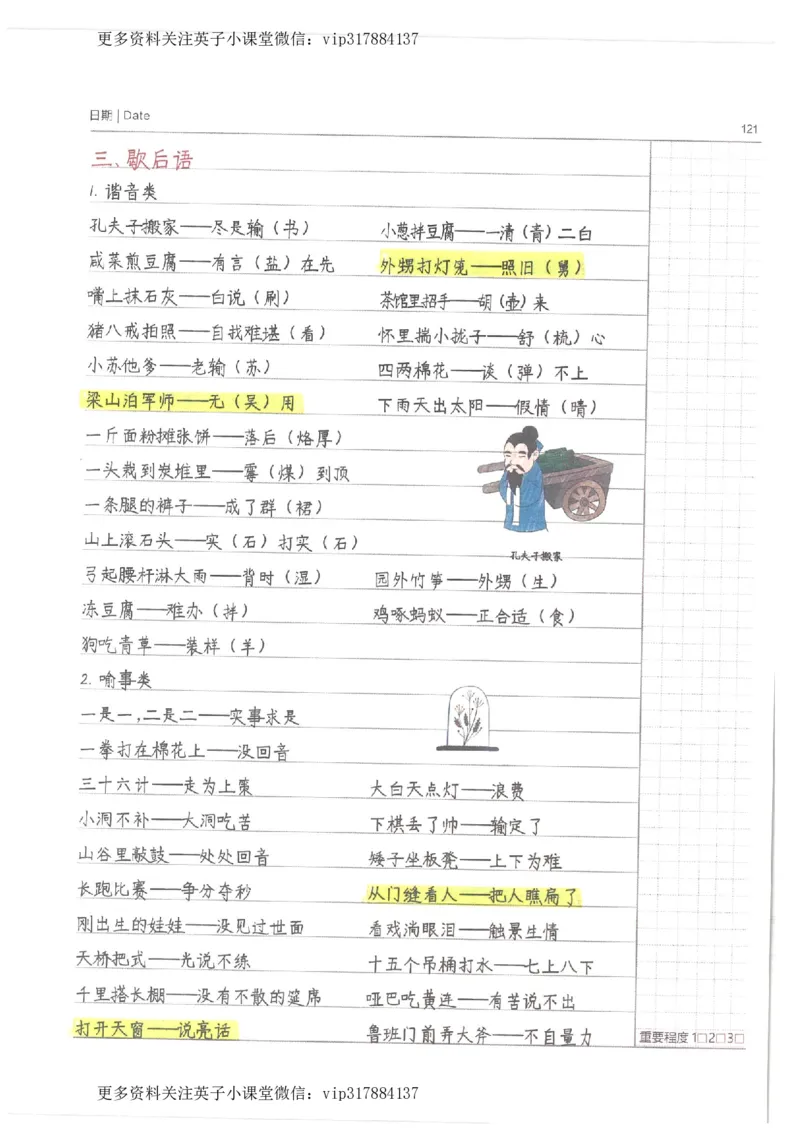 更多资料关注英子小课堂微信：vip317884137
日期 | Date
121
三、歇后语
1. 谐音类
孔夫子搬家——尽是输（书） 小葱拌豆腐——一清（青）二白
咸菜煎豆腐——有言（盐）在先 外甥打灯笼——照旧（舅）
嘴上抹石灰——白说（刷） 茶馆里招手——胡（壶）来
猪八戒拍照——自我难堪（看） 怀里揣小拢子——舒（梳）心
小苏他爹——老输（苏） 四两棉花——谈（弹）不上
梁山泊军师——无（吴）用 下雨天出太阳——假情（晴）
一斤面粉摊张饼——落后（烙厚）
一头栽到炭堆里——霉（煤）到顶
一条腿的裤子——成了群（裙）
山上滚石头——实（石）打实（石）
孔夫子搬家
弓起腰杆淋大雨——背时（湿） 园外竹笋——外甥（生）
冻豆腐——难办（拌） 鸡啄蚂蚁——正合适（食）
狗吃青草——装样（羊）
2. 喻事类
一是一，二是二——实事求是
一拳打在棉花上——没回音
三十六计——走为上策 大白天点灯——浪费
小洞不补——大洞吃苦 下棋丢了帅——输定了
山谷里敲鼓——处处回音 矮子坐板凳——上下为难
长跑比赛——争分夺秒 从门缝看人——把人瞧扁了
刚出生的娃娃——没见过世面 看戏淌眼泪——触景生情
天桥把式——光说不练 十五个吊桶打水——七上八下
千里搭长棚——没有不散的筵席 哑巴吃黄连——有苦说不出
打开天窗——说亮话 鲁班门前弄大斧——不自量力
重要程度 1□2□3□
更多资料关注英子小课堂微信：vip317884137